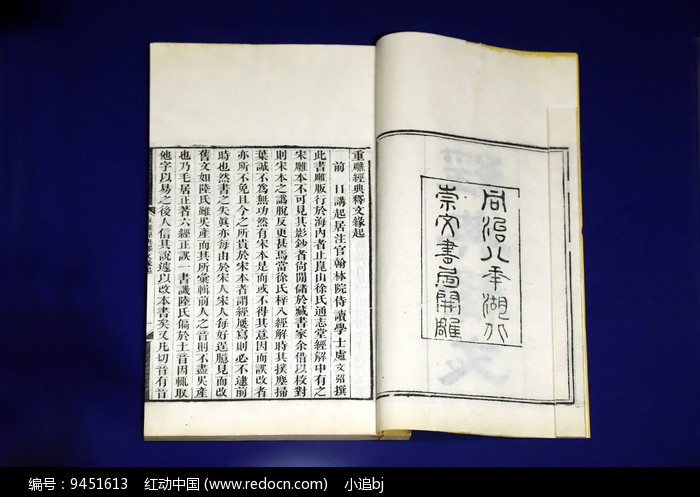 同治八年湖北
崇文書局開雕
重雕經典釋文緣起
前日講起居注官翰林院侍讀學士盧文弨撰
此書雕版行於海內者止崑山徐氏通志堂經解中有之
宋雕本不可見其影鈔者尙閒儲於藏書家余借以校對
則宋本之譌脫反更甚焉當徐氏梓入經解時其撲塵掃
葉誠不爲無功然有宋本是而或不得其意因而誤改者
亦所不免且今之所貴於宋本者謂經屢寫則必不逮前
時也然書之失眞亦每由於宋人宋人每好逞臆見而改
舊文如陸氏雖吳產而其所彙輯前人之音則不盡吳產
也乃毛居正著六經正誤一書譏陸氏偏於土音因輒取
他字以易之後人信其說遂以改本書矣又凡切音有音
编号：9451613 红动中国 (www.redocn.com) 小追bj